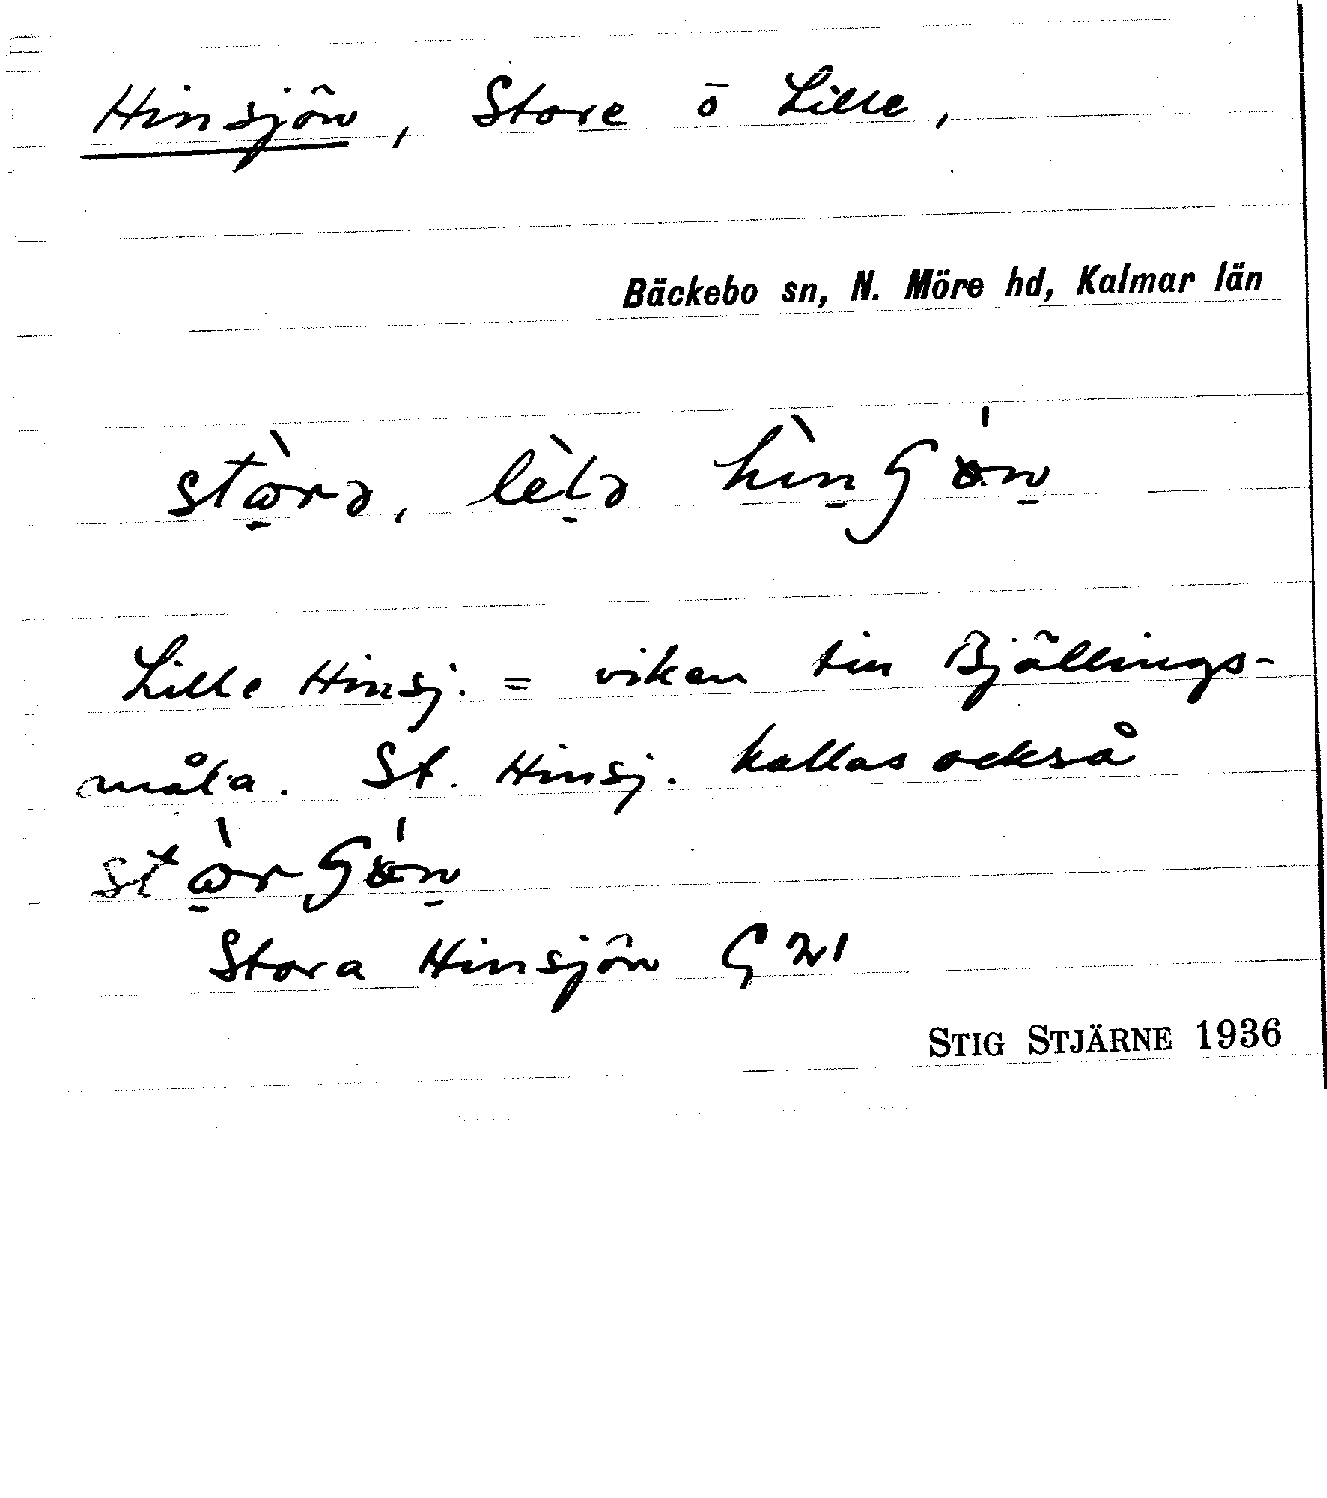 Hinsjön, Store o Lille,
Bäckebo sn, N. Möre hd, Kalmar län
Lille Hinsj. = viken till Bjällings-
måla. St. Hinsj. kallas också
Stora Hinsjön G 21
STIG STJÄRNE 1936